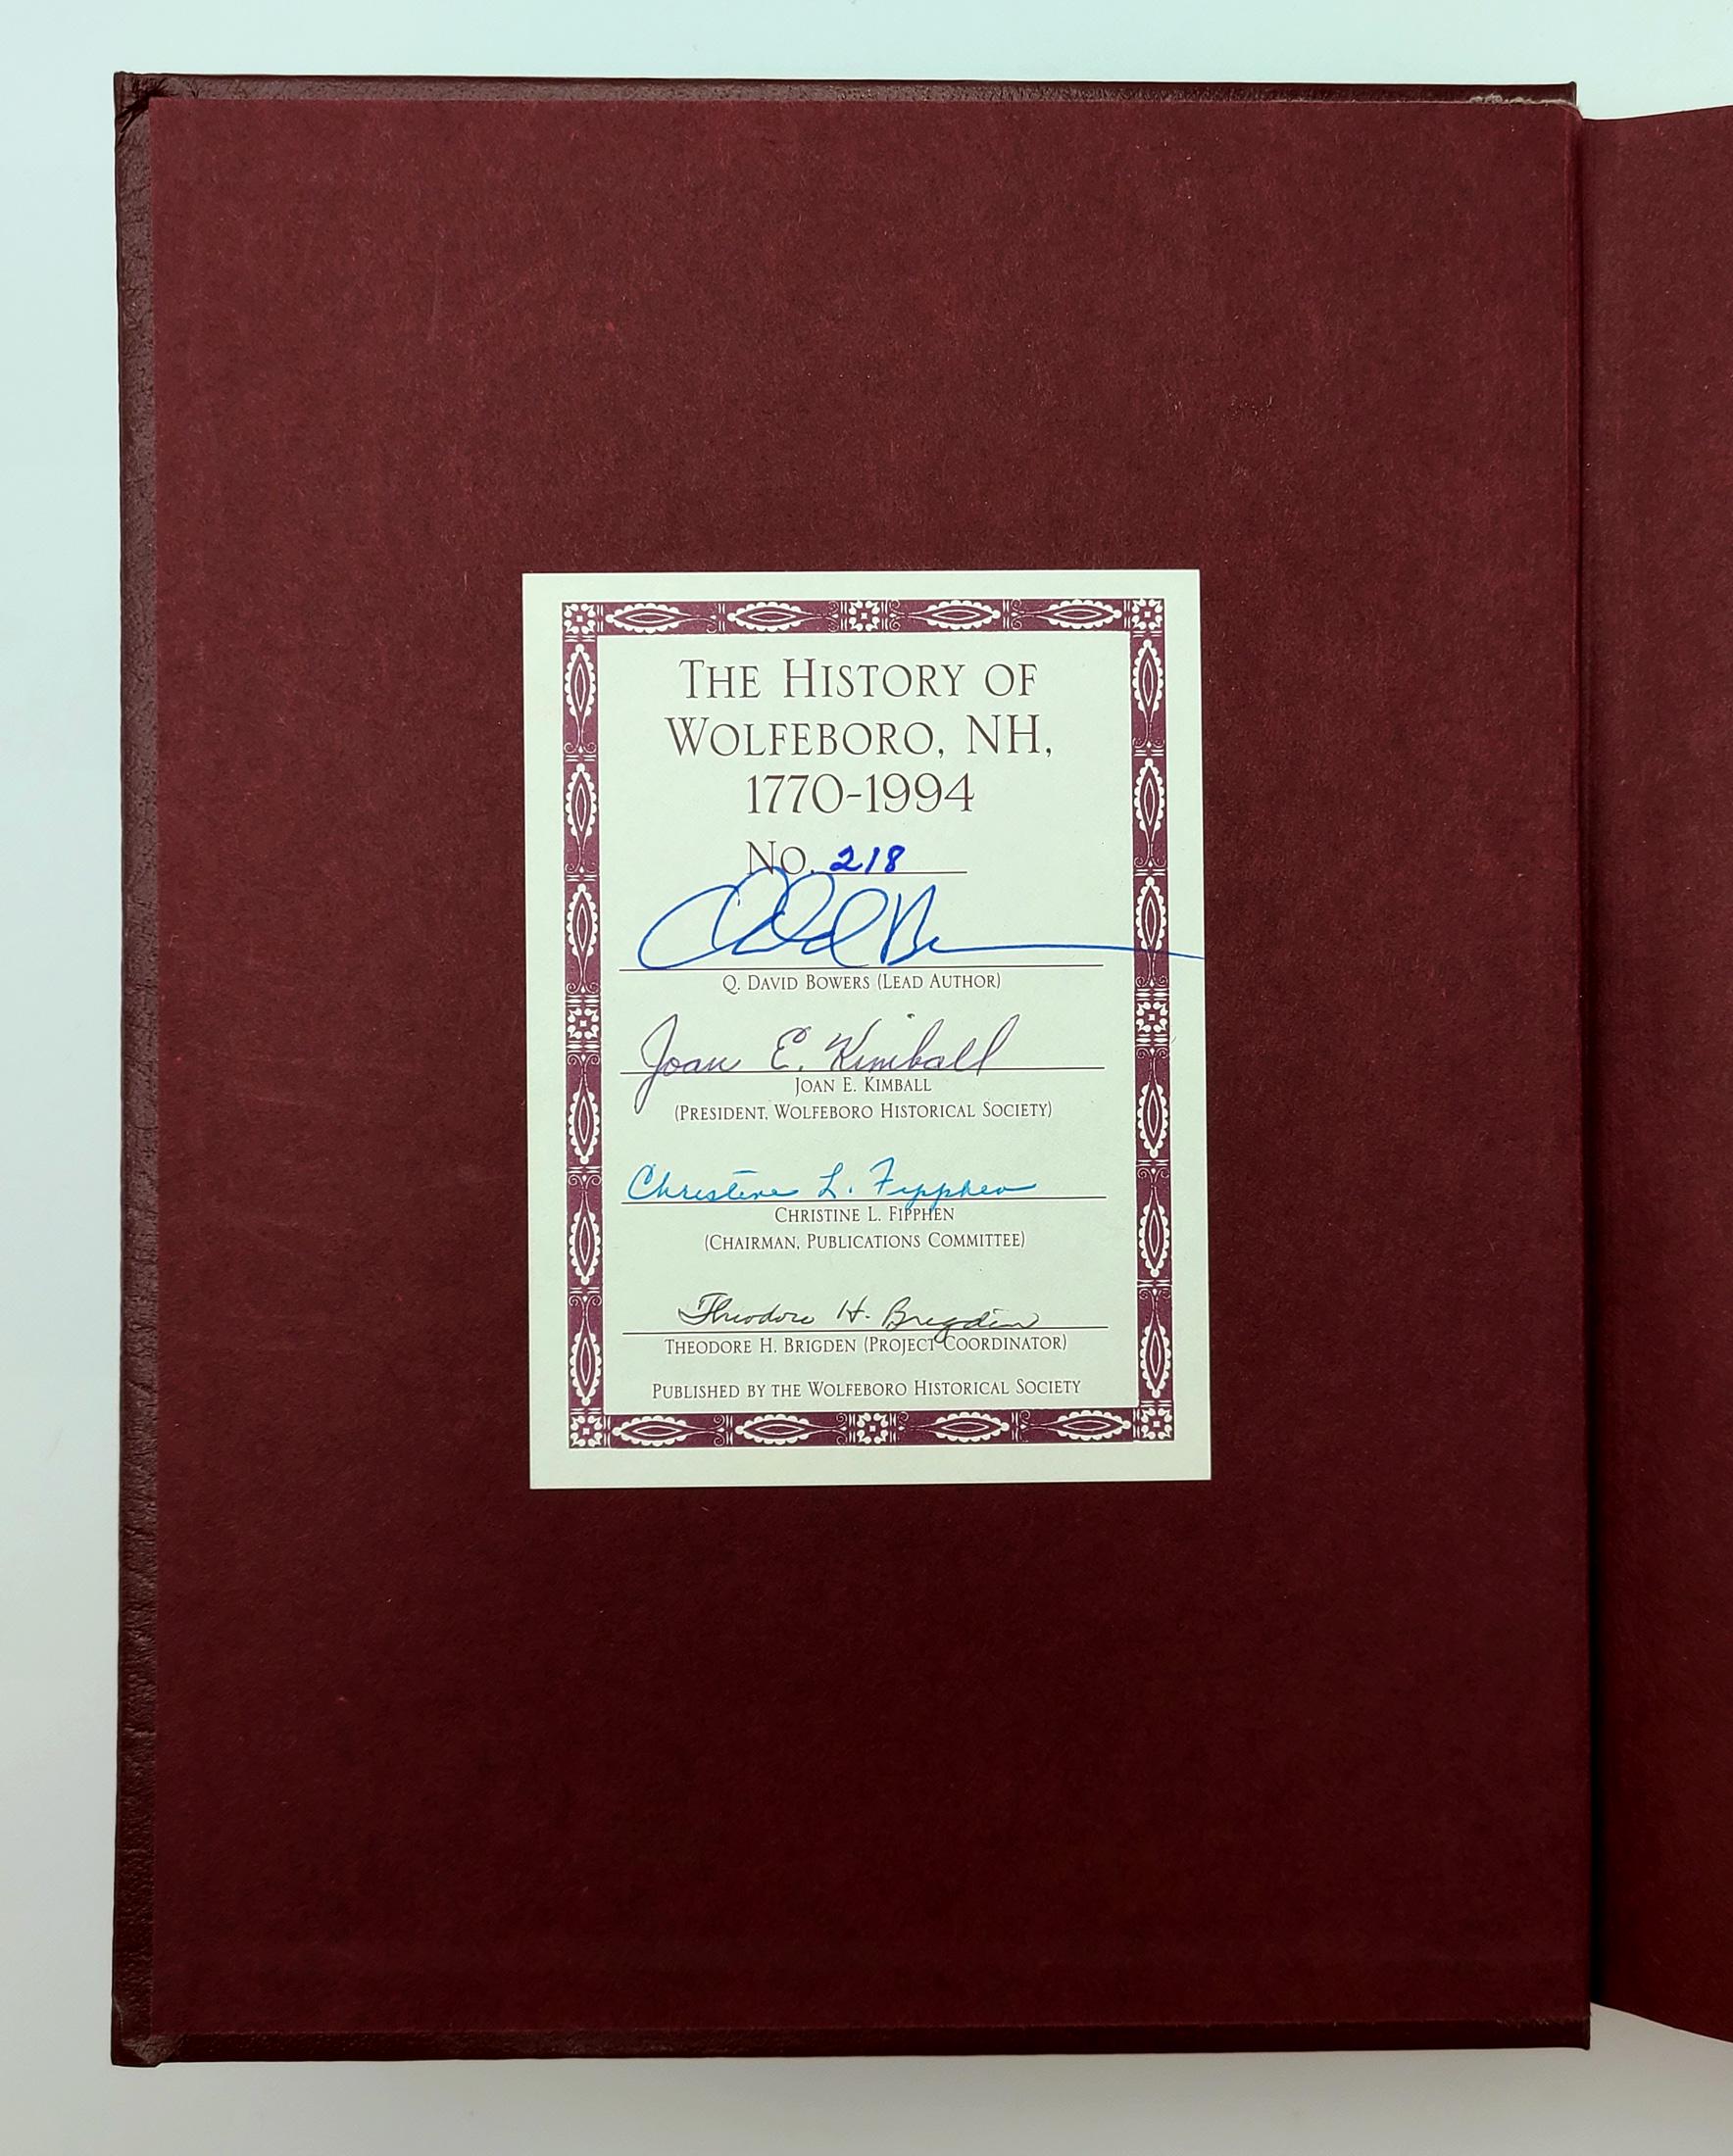 THE HISTORY OF
WOLFEBORO, NH,
1770-1994
NO. 218
Q. DAVID BOWERS (LEAD AUTHOR)
Joan E. Kimball
JOAN E. KIMBALL
(PRESIDENT, WOLFEBORO HISTORICAL SOCIETY)
Christine L. Fipphen
CHRISTINE L. FIPPHEN
(CHAIRMAN, PUBLICATIONS COMMITTEE)
Theodore H. Brigden
THEODORE H. BRIGDEN (PROJECT COORDINATOR)
PUBLISHED BY THE WOLFEBORO HISTORICAL SOCIETY